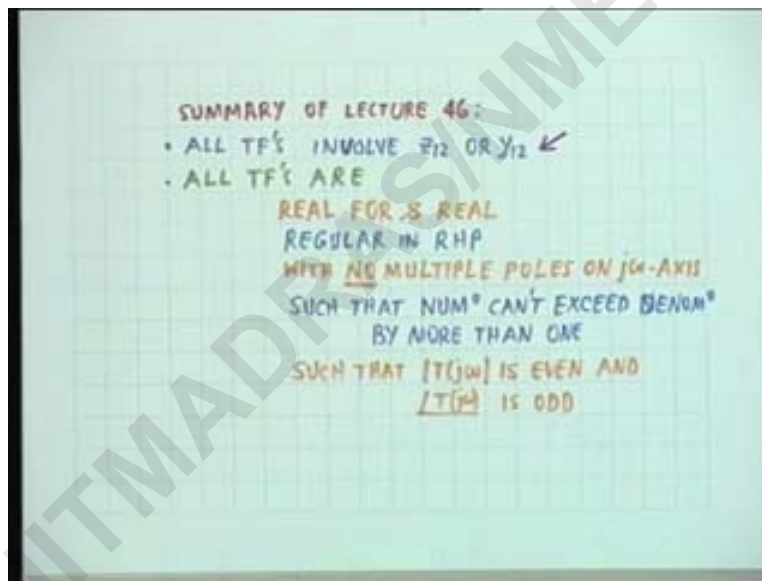 SUMMARY OF LECTURE 46:
• ALL TF'S INVOLVE z₁₂ OR y₁₂ ↙
• ALL TF'S ARE
REAL FOR s REAL
REGULAR IN RHP
WITH NO MULTIPLE POLES ON jω-AXIS
SUCH THAT NUM° CAN'T EXCEED DENOM°
BY MORE THAN ONE
SUCH THAT |T(jω)| IS EVEN AND
∠T(jω) IS ODD
IITMADRAS/NME